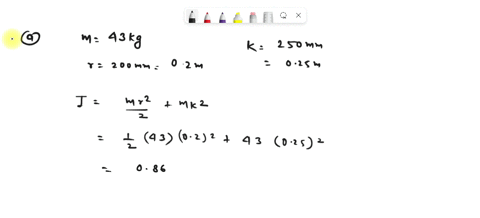 (a) m = 43 kg K = 250 mm
r = 200 mm = 0.2 m = 0.25 m
J = mr²/2 + mk²
= 1/2 (43) (0.2)² + 43 (0.25)²
= 0.86